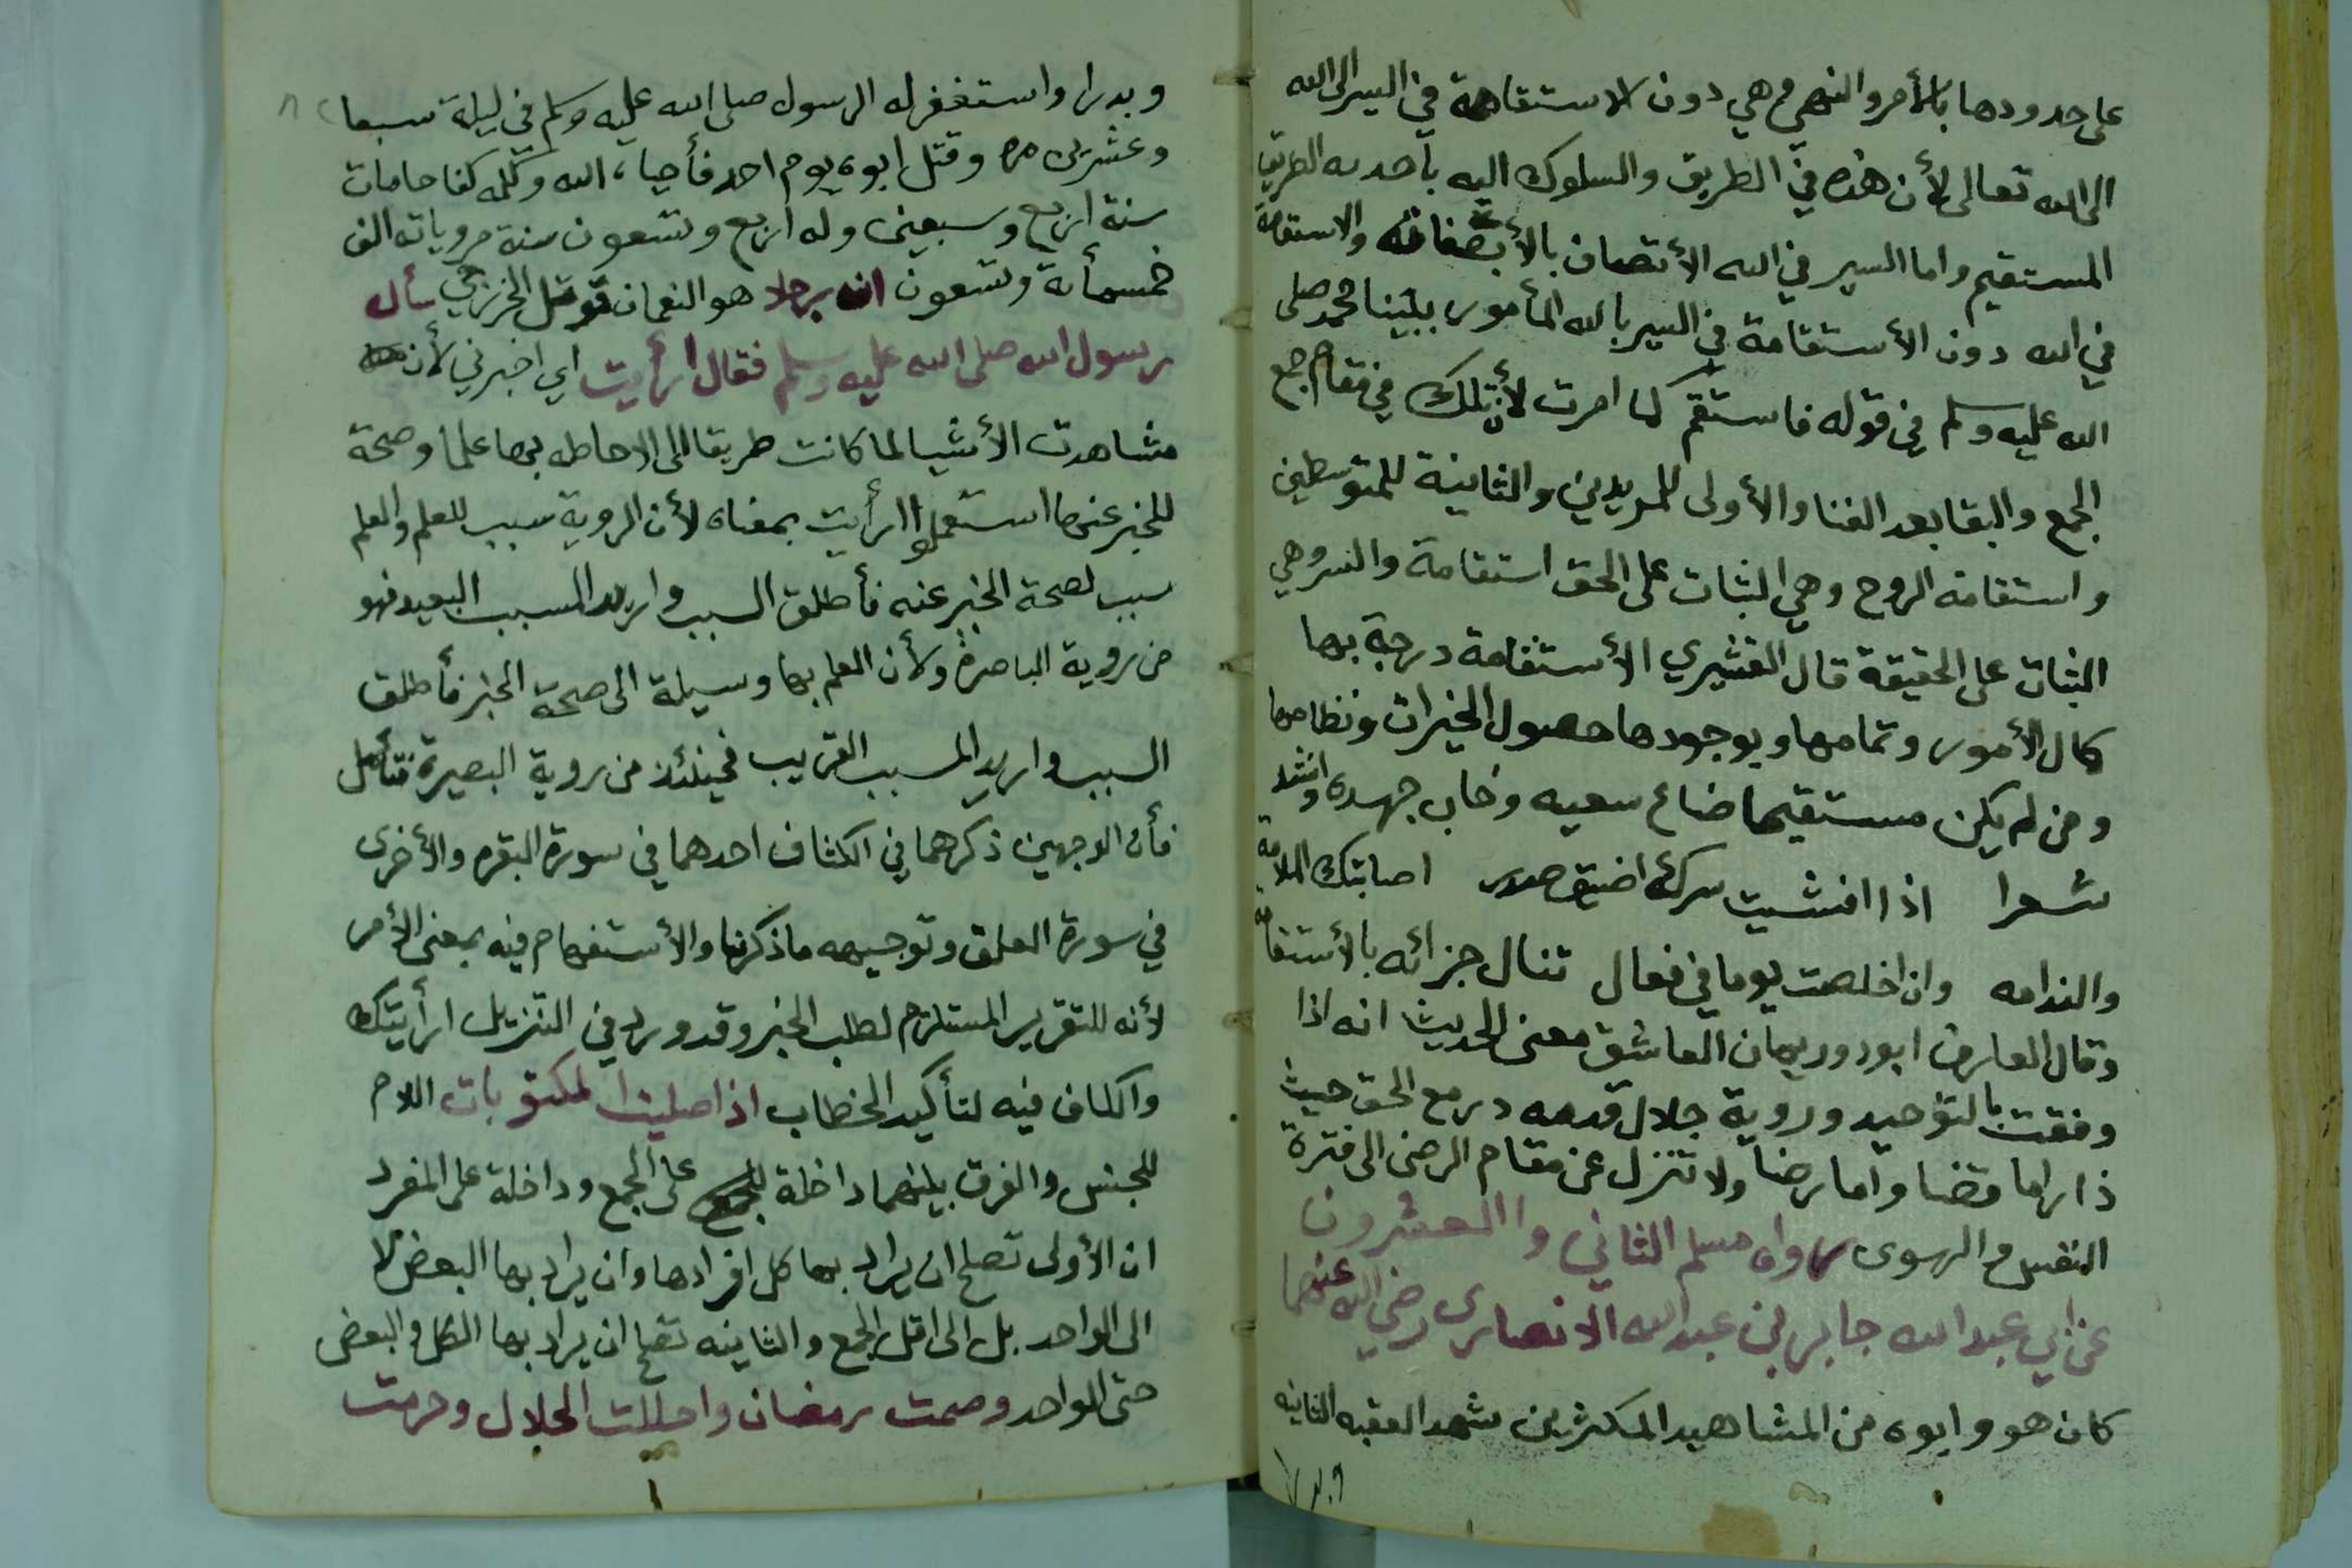 على حدودها بالأمر والنهي وهي دون الاستقامة في السير الى الله
الى الله تعالى لأن هذه في الطريق والسلوك اليه بأحدية الطريق
المستقيم واما السير في الله الأتصاف بصفاته والاستقامة
في الله دون الأستقامة في السير بالله المأمور بنبينا محمد صلى
الله عليه وسلم في قوله فاستقم كما امرت لأن تلك في مقام جمع
الجمع والبقا بعد الفنا والأولى للمريدين والثانية للمتوسطين
واستقامة الروح وهي الثبات على الحق استقامة والسر وهي
الثبات على الحقيقة قال القشيري الأستقامة درجة بها
كمال الأمور وتمامها وبوجودها حصول الخيرات ونظامها
ومن لم يكن مستقيما ضاع سعيه وخاب جهده وانشد
شعرا اذا افشيت سرك اضيق صدر اصابتك الملامة
والندامه وان اخلصت يوما في فعال تنال جزائه بالأستقامة
وقال العارف ابو روريهان العاشق معنى الحديث انه اذا
وفقت بالتوحيد وروية جلال قدمه در مع الحق حيث
دار اما قضا واما رضا ولا تنزل عن مقام الرضى الى فترة
النفس والهوى رواه مسلم الثاني والعشرون
عن ابي عبد الله جابر بن عبد الله الانصاري رضي الله عنهما
كان هو وابوه من المشاهيد المكثرين شهد العقبه الثانيه
وبدرا واستغفر له الرسول صلى الله عليه وسلم في ليلة سبعا
وعشرين مره وقتل ابوه يوم احد فأحياه الله وكلمه كفاحا مات
سنة اربع وسبعين وله اربع وتسعون سنة مروياته الف
خمسمأة وتسعون ان رجلا هو النعمان قوقل الخزرجي سأل
رسول الله صلى الله عليه وسلم فقال ارأيت اي اخبرني لأن
مشاهدت الأشيا لما كانت طريقا الى الاحاطه بها علما وصحة
للخبر عنها استعملوا ارأيت بمعناه لأن الروية سبب للعلم والعلم
سبب لصحة الخبر عنه فأطلق السبب واريد المسبب البعيد فهو
من روية الباصرة ولأن العلم بها وسيلة الى صحة الخبر فأطلق
السبب واريد المسبب القريب فحينئذ من روية البصيرة فتأمل
فأن الوجهين ذكرهما في الكشاف احدهما في سورة البقره والأخرى
في سورة العلق وتوجيهه ماذكرنا والأستفهام فيه بمعنى الأمر
لأنه للتقرير المستلزم لطلب الخبر وقد ورد في التنزيل ارأيتك
والكاف فيه لتأكيد الخطاب اذا صليت المكتوبات اللام
للجنس والفرق بينهما داخلة على الجمع وداخلة على المفرد
ان الأولى تصلح ان يراد بها كل افرادها وان يراد بها البعض لا
الى الواحد بل الى اقل الجمع والثانيه تصلح ان يراد بها الكل والبعض
حتى الواحد وصمت رمضان واحللت الحلال وحرمت